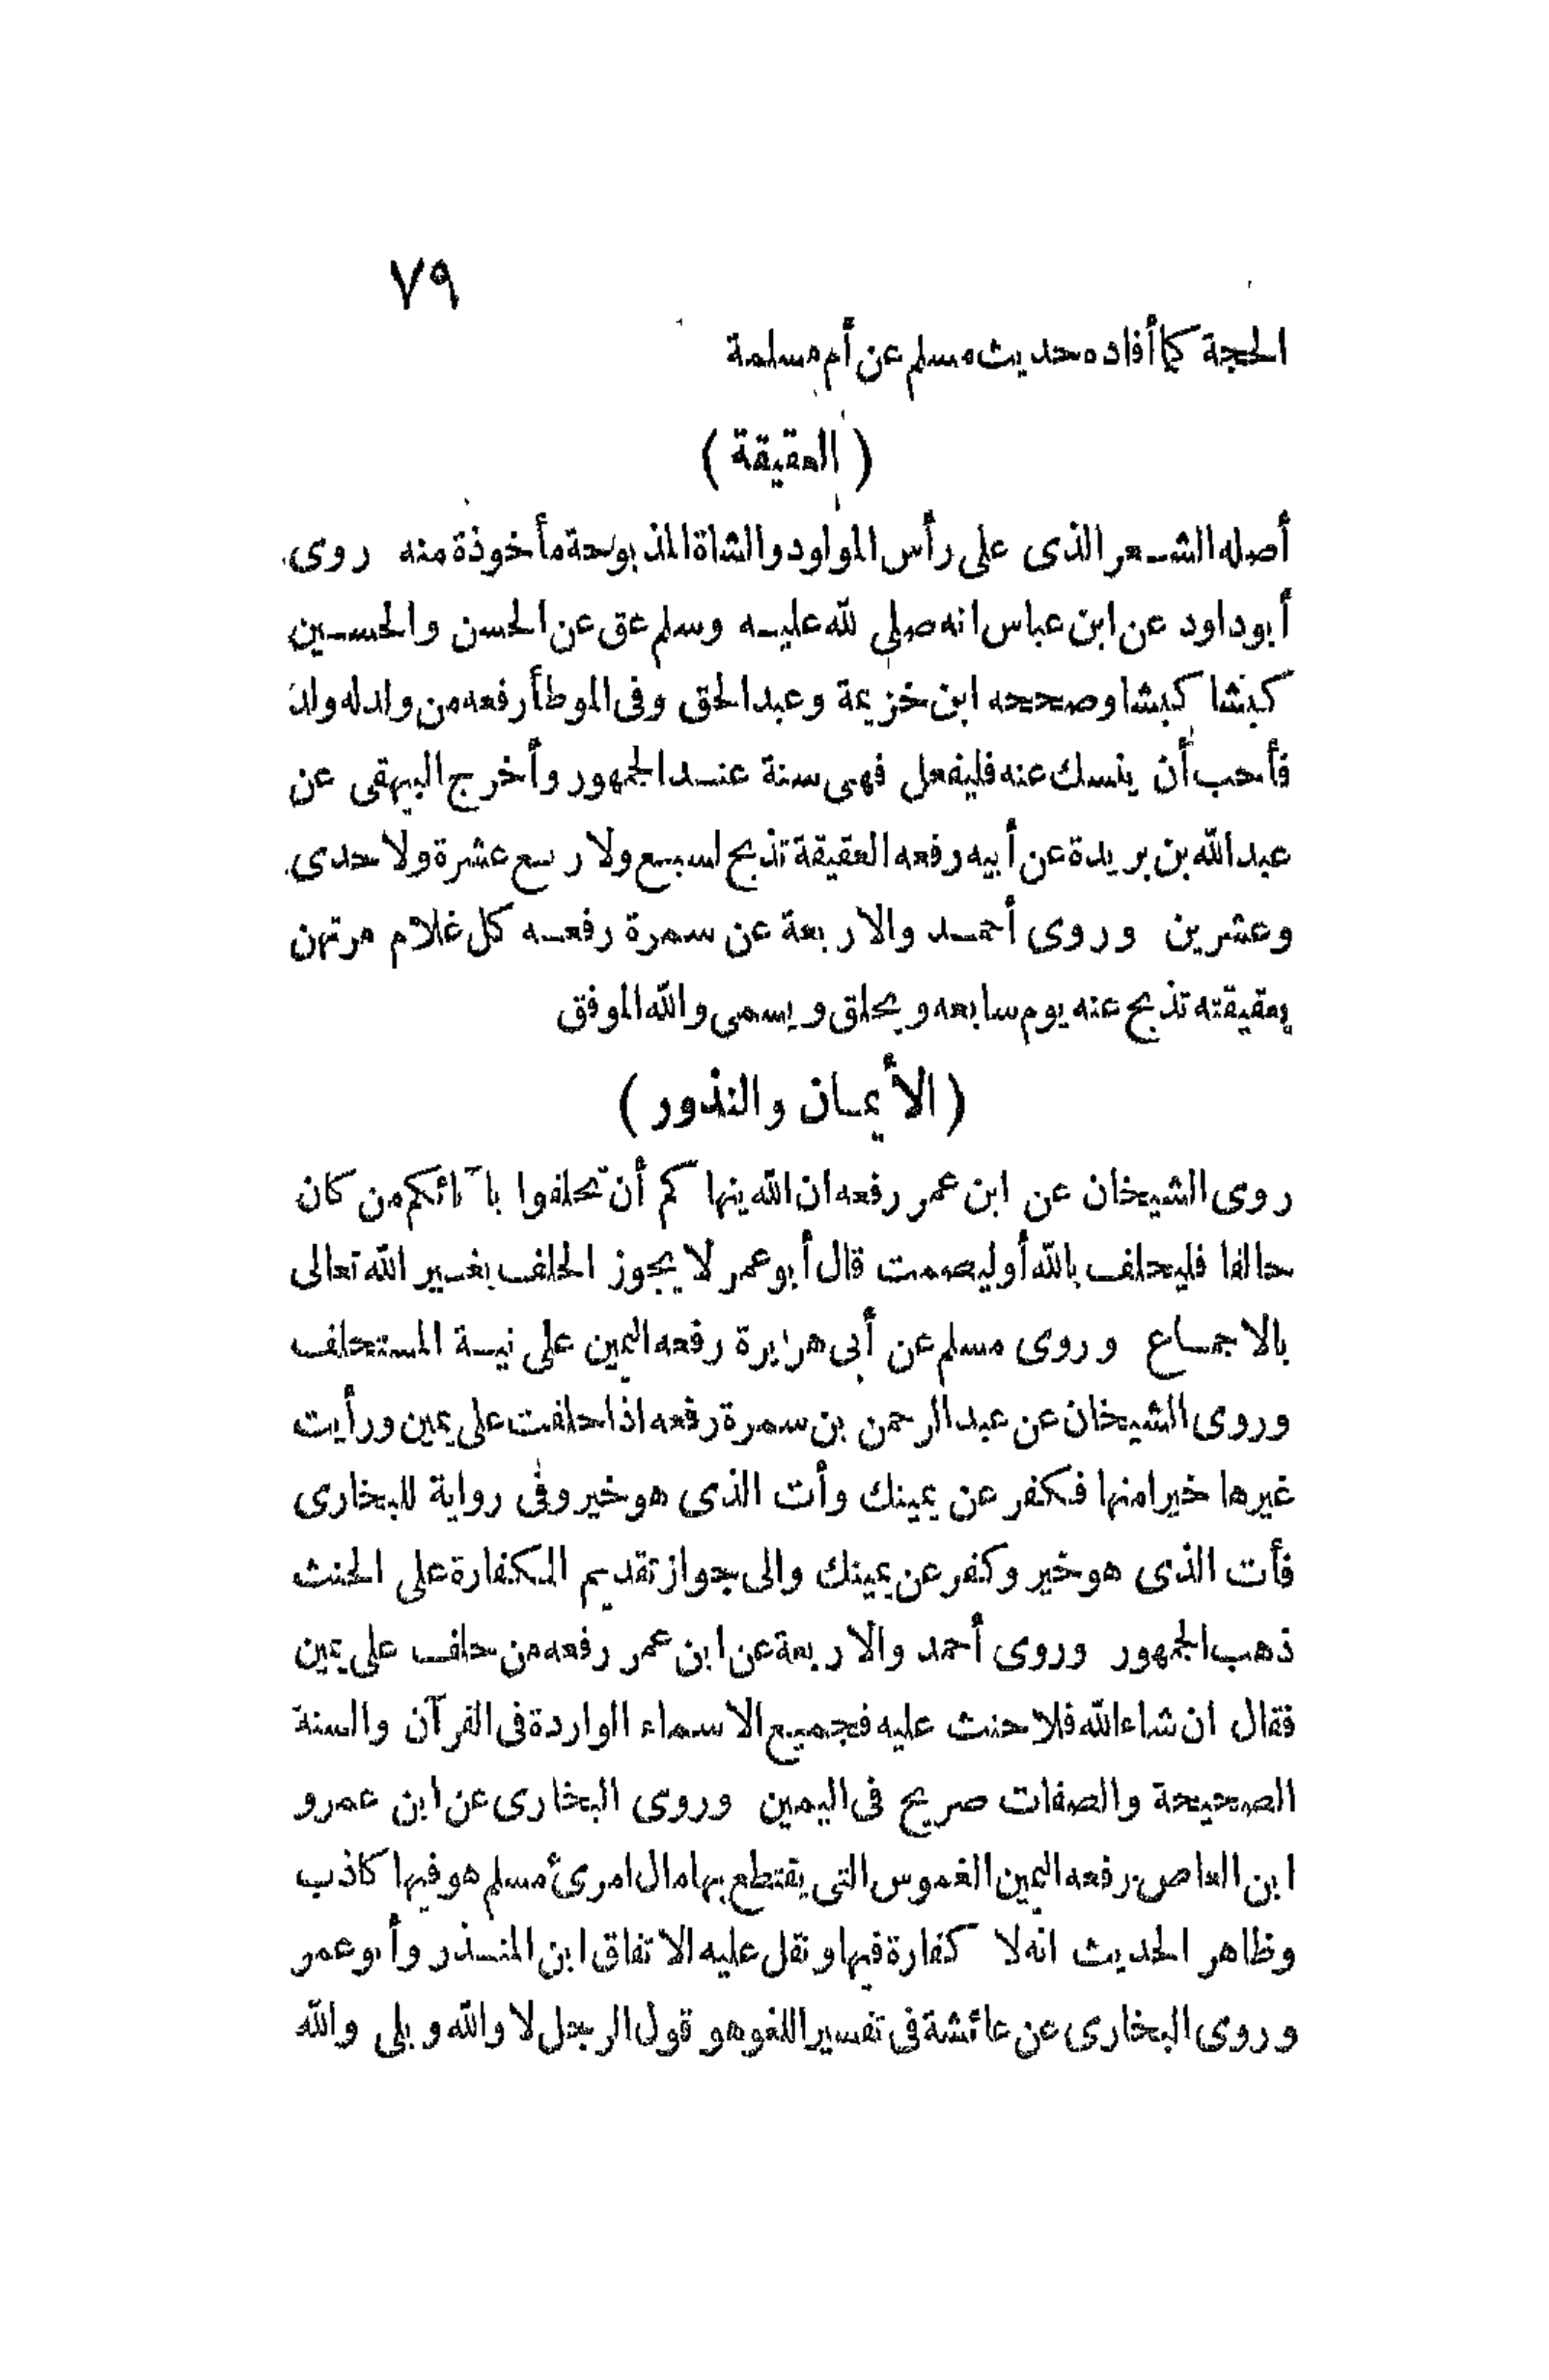 ٧٩
الحجة كما أفاده حديث مسلم عن أم مسلمة
( العقيقة )
أصله الشعر الذى على رأس المولود والشاة المذبوحة مأخوذة منه روى
أبو داود عن ابن عباس انه صلى لله عليه وسلم عق عن الحسن والحسين
كبشا كبشا وصححه ابن خزيمة وعبد الحق وفى الموطأ رفعه من ولد له ولد
فأحب أن ينسك عنه فليفعل فهى سنة عند الجمهور وأخرج البيهقى عن
عبد الله بن بريدة عن أبيه رفعه العقيقة تذبح لسبع ولاربع عشرة ولاحدى
وعشرين وروى أحمد والاربعة عن سمرة رفعه كل غلام مرتهن
بعقيقته تذبح عنه يوم سابعه ويحلق ويسمى والله الموفق
( الأيمان والنذور )
روى الشيخان عن ابن عمر رفعه ان الله ينهاكم أن تحلفوا بآبائكم من كان
حالفا فليحلف بالله أو ليصمت قال أبو عمر لا يجوز الحلف بغير الله تعالى
بالاجماع وروى مسلم عن أبى هريرة رفعه اليمين على نية المستحلف
وروى الشيخان عن عبد الرحمن بن سمرة رفعه اذا حلفت على يمين ورأيت
غيرها خيرا منها فكفر عن يمينك وأت الذى هو خير وفى رواية للبخارى
فأت الذى هو خير وكفر عن يمينك والى جواز تقديم الكفارة على الحنث
ذهب الجمهور وروى أحمد والاربعة عن ابن عمر رفعه من حلف على يمين
فقال ان شاء الله فلا حنث عليه فجميع الاسماء الواردة فى القرآن والسنة
الصحيحة والصفات صريح فى اليمين وروى البخارى عن ابن عمرو
ابن العاص رفعه اليمين الغموس التى يقتطع بها مال امرئ مسلم هو فيها كاذب
وظاهر الحديث انه لا كفارة فيها ونقل عليه الاتفاق ابن المنذر وأبو عمر
وروى البخارى عن عائشة فى تفسير اللغو هو قول الرجل لا والله وبلى والله